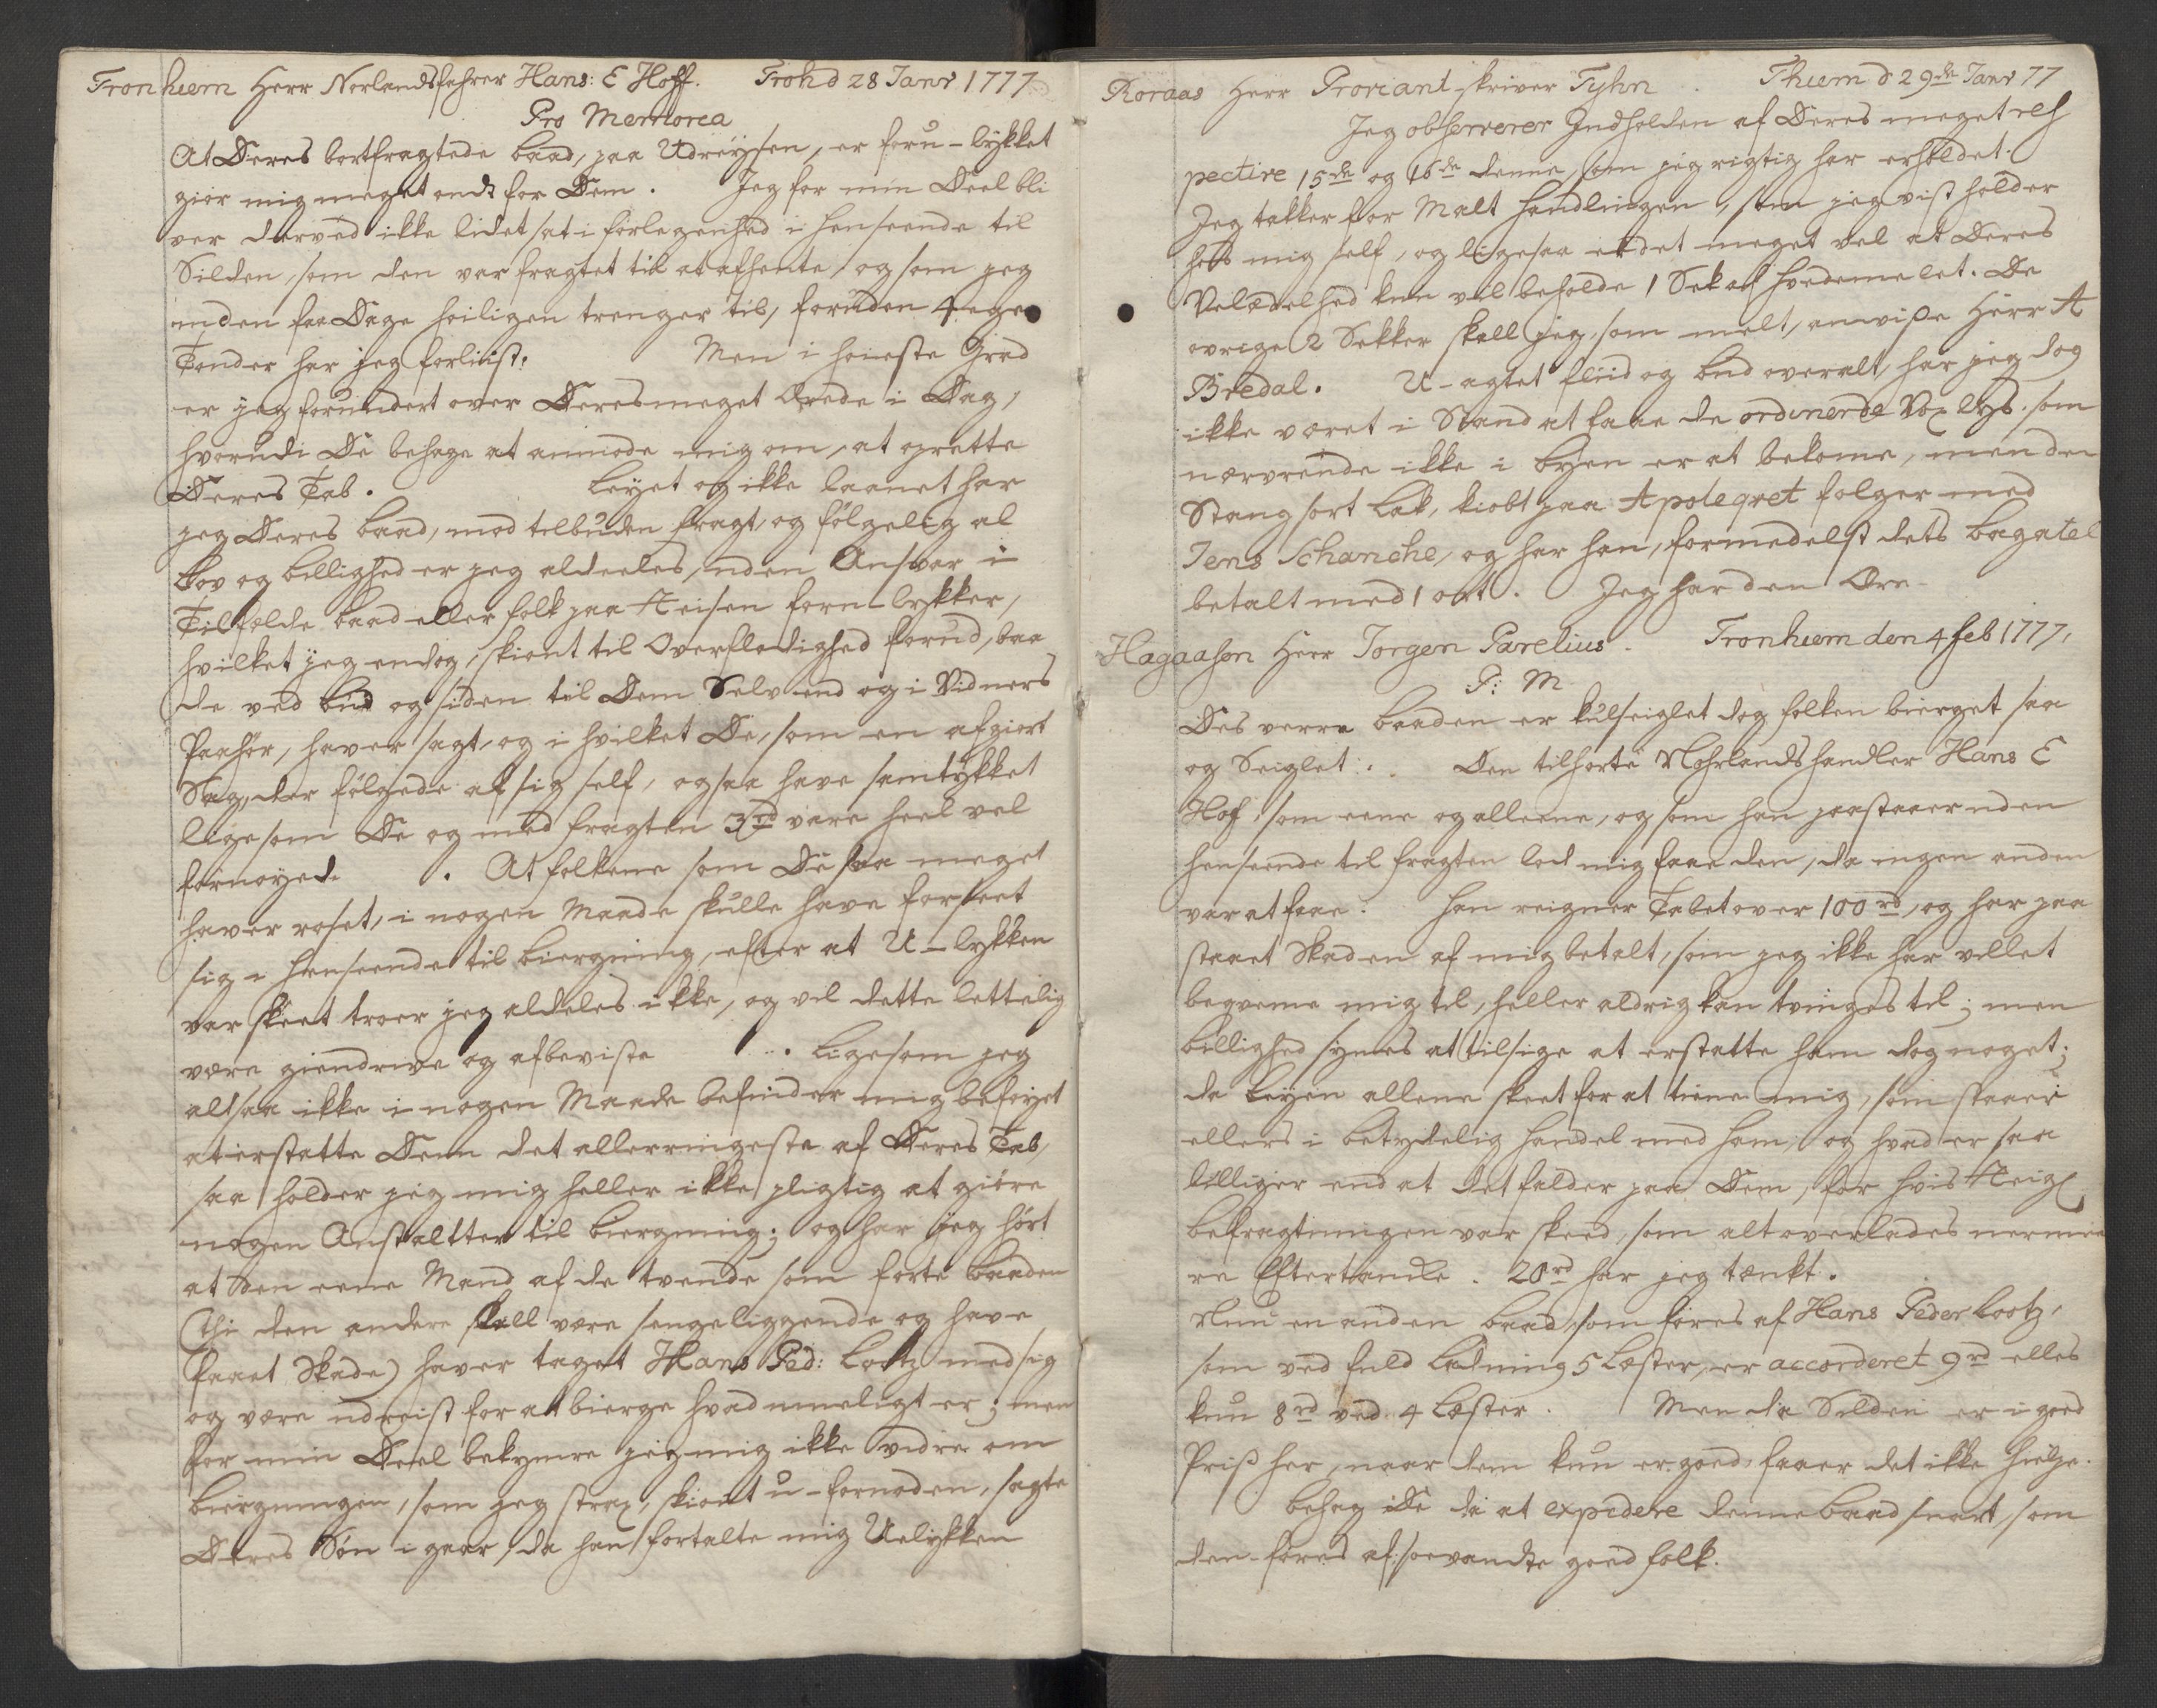 Tronhiem Herr Norlandsfahrer Hans: E Hoff. Trohd 28 Janr 1777
Pro Memoria
At Deres bortfragtede baad, paa Udreysen, er foru-lykket
giør mig meget ondt for Dem. Jeg for min Deel bli
ver derved ikke lidet sat i forlegenhed i henseende til
Silden, som den var fragtet til at afhente, og som jeg
inden faa Dage høiligen trenger til, foruden 4 egne
Tønder har jeg forliist. Men i høieste Grad
er jeg forundert over Deres meget Ærede i Dag,
hvorudi De behage at anmode mig om, at oprette
Deres Tab. Leyet og ikke laanet har
jeg Deres baad, mod tilbuden fragt, og følgelig al
Lov og billighed er jeg aldeeles uden Ansvar i
Tilfælde baad eller folk paa Reisen foru-lykker,
hvilket jeg endog, skiønt til Overflødighed forud, baa
de ved bud og siden til Dem Selv end og i Vidners
Paahør, haver sagt, og i hvilket De, som en afgiort
Sag, der følgede af sig self, ogsaa have samtykket
ligesom De og med fragten 3 rd vare heel vel
fornøyed. At folkene som De saa meget
haver roset, i nogen Maade skulle have forseet
sig i henseende til biergning, efter at U-lykken
var skeet troer jeg aldeles ikke, og vil dette lettelig
være giendrive og afbeviste. Ligesom jeg
altsaa ikke i nogen Maade befinder mig beføyet
at erstatte Dem det allerringeste af Deres Tab,
saa holder jeg mig heller ikke pligtig at giøre
nogen Anstaltter til biergning; og har jeg hørt
at den eene Mand af de tvende som førte baaden
(thi den anden skall være sengeliggende og have
faaet Skade) haver taget Hans Ped: Lootz med sig
og være udreist for at bierge hvad mueligt er; men
for min Deel bekymre jeg mig ikke vidre om
biergningen, som jeg strax, skiønt u-fornøden, sagte
Deres Søn i gaar, da han fortalte mig Uelykken
Røraas Herr Proviantskriver Tyhn. Thiem d 29de Janr 77
Jeg observerer Indholden af Deres meget res
pective 15de og 16de denne, som jeg rigtig har erholdet.
Jeg takker for Malt handlingen, som jeg vist holder
hos mig self, og ligesaa er det meget vel at Deres
Velædelhed kun vil beholde 1 Sek af hvedemelet. De
øvrige 2 Sekker skall jeg, som melt, anvise Herr A
Bredal. U-agtet fliid og bud overalt, har jeg dog
ikke været i Stand at faae de ordinerde Vox lys. som
nærværende ikke i byen er at bekome, men den
Stang sort Lak, kiøbt paa Apoteqvet følger med
Jens Schanche, og har han, formedelst dets bagatel
betalt med 1 ort. Jeg har den Ære
Hagaasen Herr Jørgen Parelius. Tronhiem den 4 feb 1777.
P: M
Des verre baaden er kulseiglet dog folken bierget saa
og Seiglet. Den tilhørte Nohrlandshandler Hans E
Hof som eene og alleene, og som han paastaaer uden
henseende til fragten lod mig faae den, da ingen anden
var at faae. Han reigner Tabet over 100 rd, og har paa
staaet Skaden af mig betalt, som jeg ikke har villet
beqveme mig til, heller aldrig kan tvinges til; men
billighed synes at tilsige at erstatte ham dog noget;
da Leyen allene skeet for at tiene mig, som staaer
ellers i betydelig handel med ham; og hvad er saa
billiger end at det falder paa Dem, for hvis Reig
befragtningen var skeed, som alt overlades nerme
re Eftertancke. 20 rd har jeg tænkt.
Nuu en anden baad, som føres af Hans Peder Lootz,
som ved fuld Ladning 5 Læster, er accorderet 9 rd elles
kun 8 rd ved 4 Læster. Men da Silden er i goed
Priss her, naar dem kun er goed, faaer det ikke hielpe.
behag De da at expidere denne baad snart, som
den føres af søevandte goed folk.